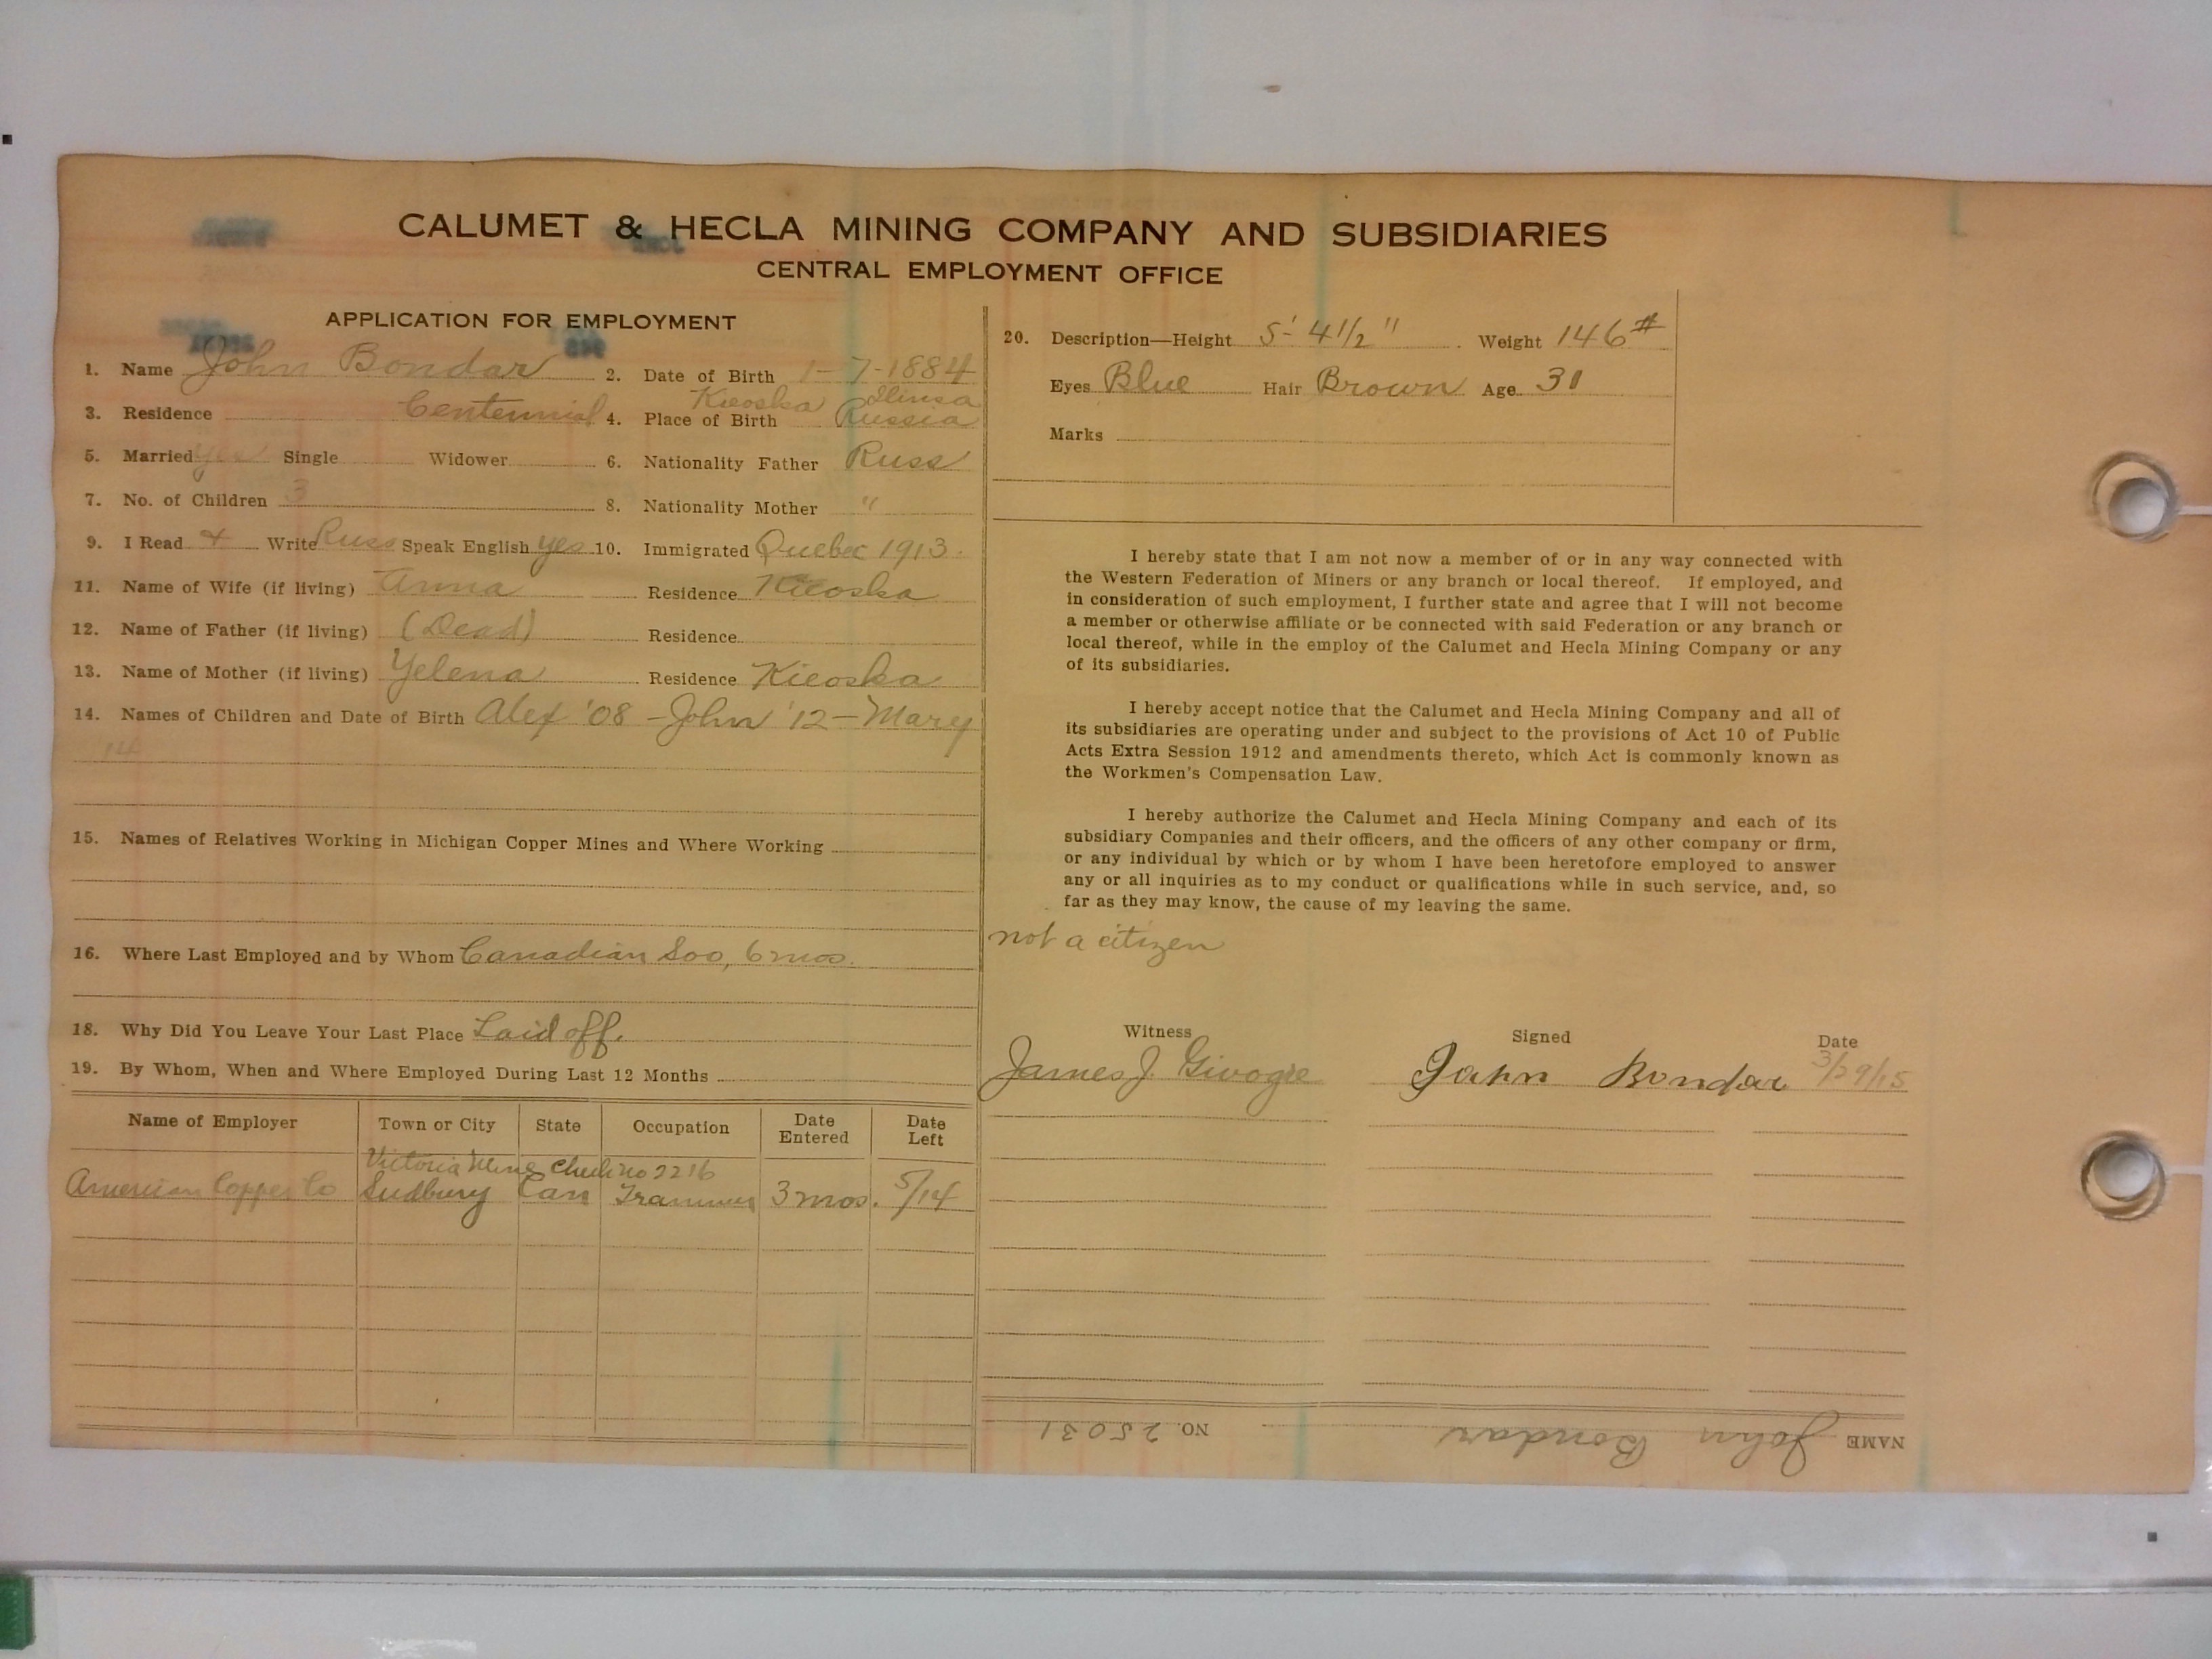 CALUMET & HECLA MINING COMPANY AND SUBSIDIARIES
CENTRAL EMPLOYMENT OFFICE
APPLICATION FOR EMPLOYMENT
1. Name John Bondar 2. Date of Birth 1-7-1884
3. Residence Centennial 4. Place of Birth Kieoska Russia
5. Married yes Single Widower 6. Nationality Father Russ
7. No. of Children 3 8. Nationality Mother "
9. I Read & Write Russ Speak English yes 10. Immigrated Quebec 1913.
11. Name of Wife (if living) Anna Residence Kieoska
12. Name of Father (if living) (Dead) Residence
13. Name of Mother (if living) Yelena Residence Kieoska
14. Names of Children and Date of Birth Alex '08 - John '12 - Mary
'14
15. Names of Relatives Working in Michigan Copper Mines and Where Working
16. Where Last Employed and by Whom Canadian Soo, 6 mos.
18. Why Did You Leave Your Last Place Laid off.
19. By Whom, When and Where Employed During Last 12 Months
Name of Employer Town or City State Occupation Date Entered Date Left
Victoria Mine Check no 2216
American Copper Co Sudbury Can Trammer 3 mos. 5/14
20. Description—Height 5' 4 1/2" Weight 146#
Eyes Blue Hair Brown Age 31
Marks
I hereby state that I am not now a member of or in any way connected with
the Western Federation of Miners or any branch or local thereof. If employed, and
in consideration of such employment, I further state and agree that I will not become
a member or otherwise affiliate or be connected with said Federation or any branch or
local thereof, while in the employ of the Calumet and Hecla Mining Company or any
of its subsidiaries.
I hereby accept notice that the Calumet and Hecla Mining Company and all of
its subsidiaries are operating under and subject to the provisions of Act 10 of Public
Acts Extra Session 1912 and amendments thereto, which Act is commonly known as
the Workmen's Compensation Law.
I hereby authorize the Calumet and Hecla Mining Company and each of its
subsidiary Companies and their officers, and the officers of any other company or firm,
or any individual by which or by whom I have been heretofore employed to answer
any or all inquiries as to my conduct or qualifications while in such service, and, so
far as they may know, the cause of my leaving the same.
not a citizen
Witness Signed Date
James J. John Bondar 3/29/15
NAME John Bondar NO. 25031